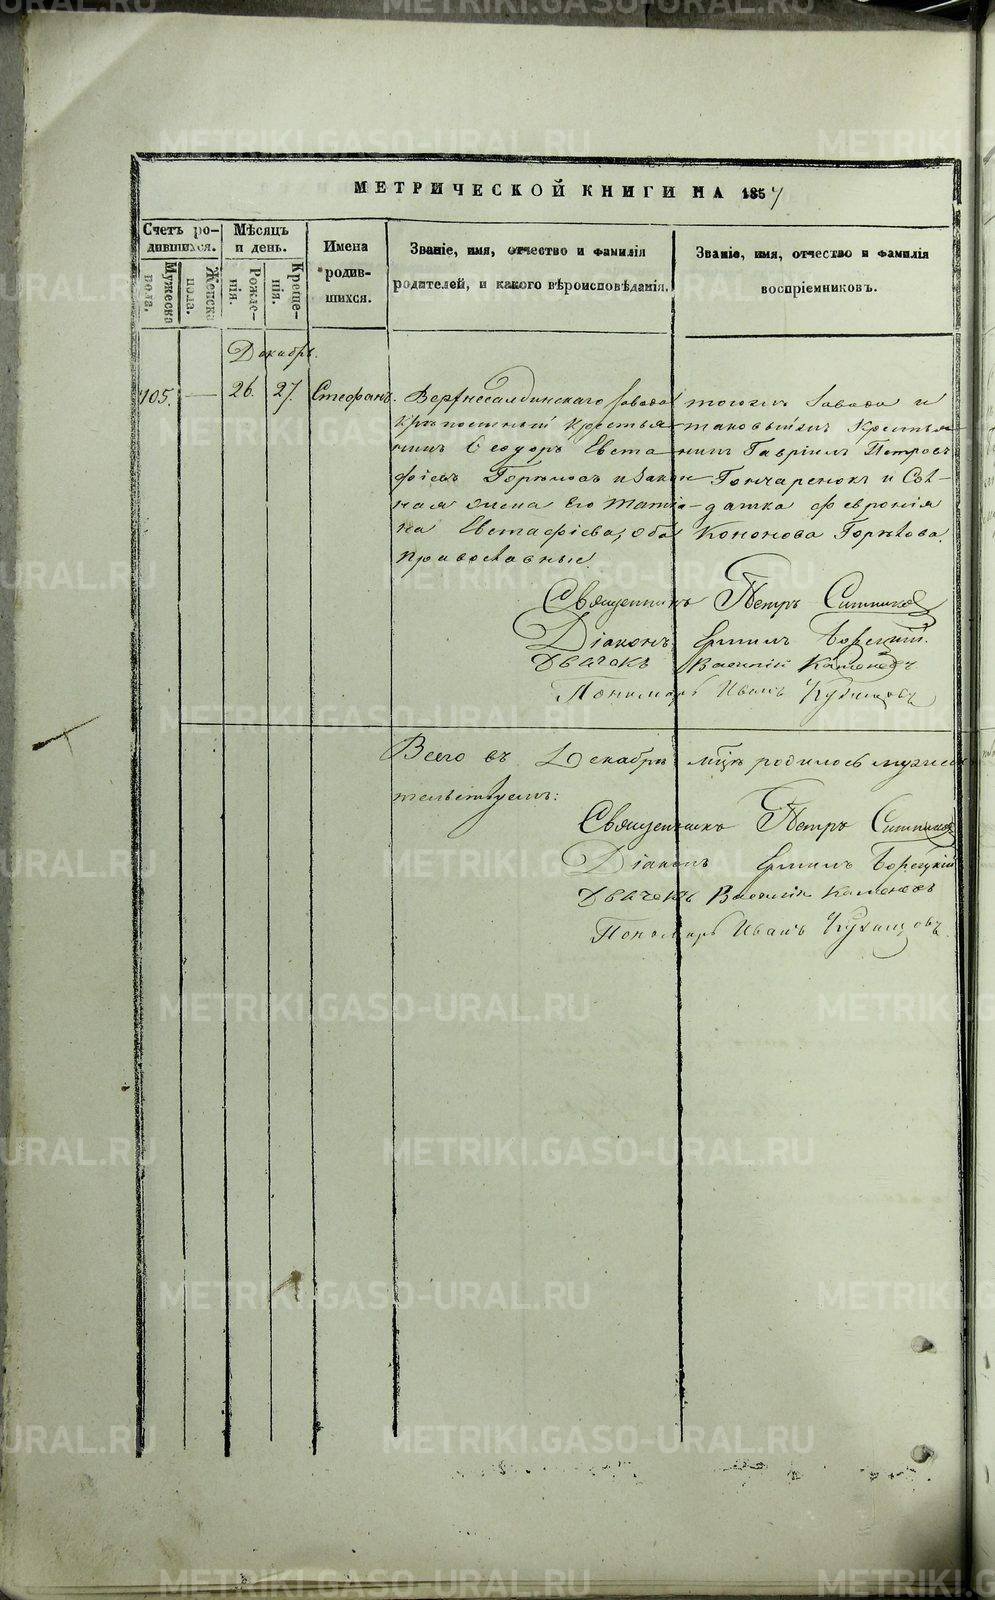 МЕТРИЧЕСКОЙ КНИГИ НА 1857
Счетъ ро-
дившихся.
Мужеска
пола.
Женска
пола.
Мѣсяцъ
и день.
Рожде-
нія.
Креще-
нія.
Имена
родив-
шихся.
Званіе, имя, отчество и фамилія
родителей, и какого вѣроисповѣданія.
Званіе, имя, отчество и фамилія
воспріемниковъ.
Декабрь.
105. — 26. 27. Стефанъ.
Верхнесалдинскаго завода
крѣпостный крестья-
нинъ Ѳеодоръ Евста-
фіевъ Горѣловъ и закон-
ная жена его Татіа-
на Евстафіева, оба
православные.
тогожъ завода и
таковыйжъ крестья-
нинъ Гавріилъ Петровъ
Гончаренокъ и Сол-
датка Февронія
Кононова Горѣлова.
Священникъ Петръ Ситниковъ
Діаконъ Ермилъ Борецкій.
Дьячокъ Василій
Пономарь Иванъ
Всего въ Декабрѣ мцѣ родилось мужеск
Священникъ Петръ Ситниковъ
Діаконъ Ермилъ Борецкій
Дьячокъ Василій
Пономарь Иванъ
METRIKI.GASO-URAL.RU